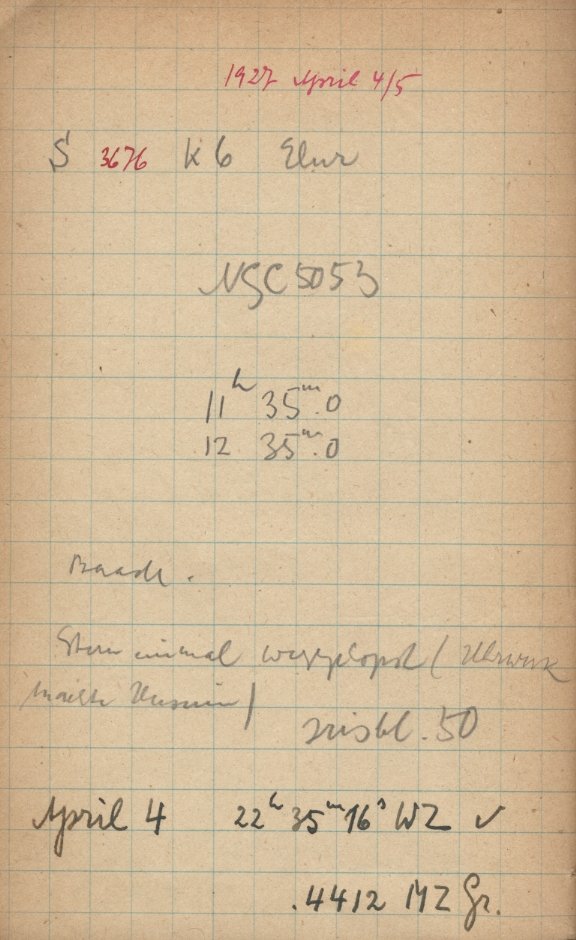 1927 April 4/5
S 3676 K 6
NGC 5053
11ʰ 35ᵐ.0
12 35ᵐ.0
Baade.
Stern einmal weggehopst (Uhrwerk
machte Unsinn)
Irisbl. 50
April 4 22ʰ 35ᵐ 16ˢ WZ ✓
.4412 MZ Gr.